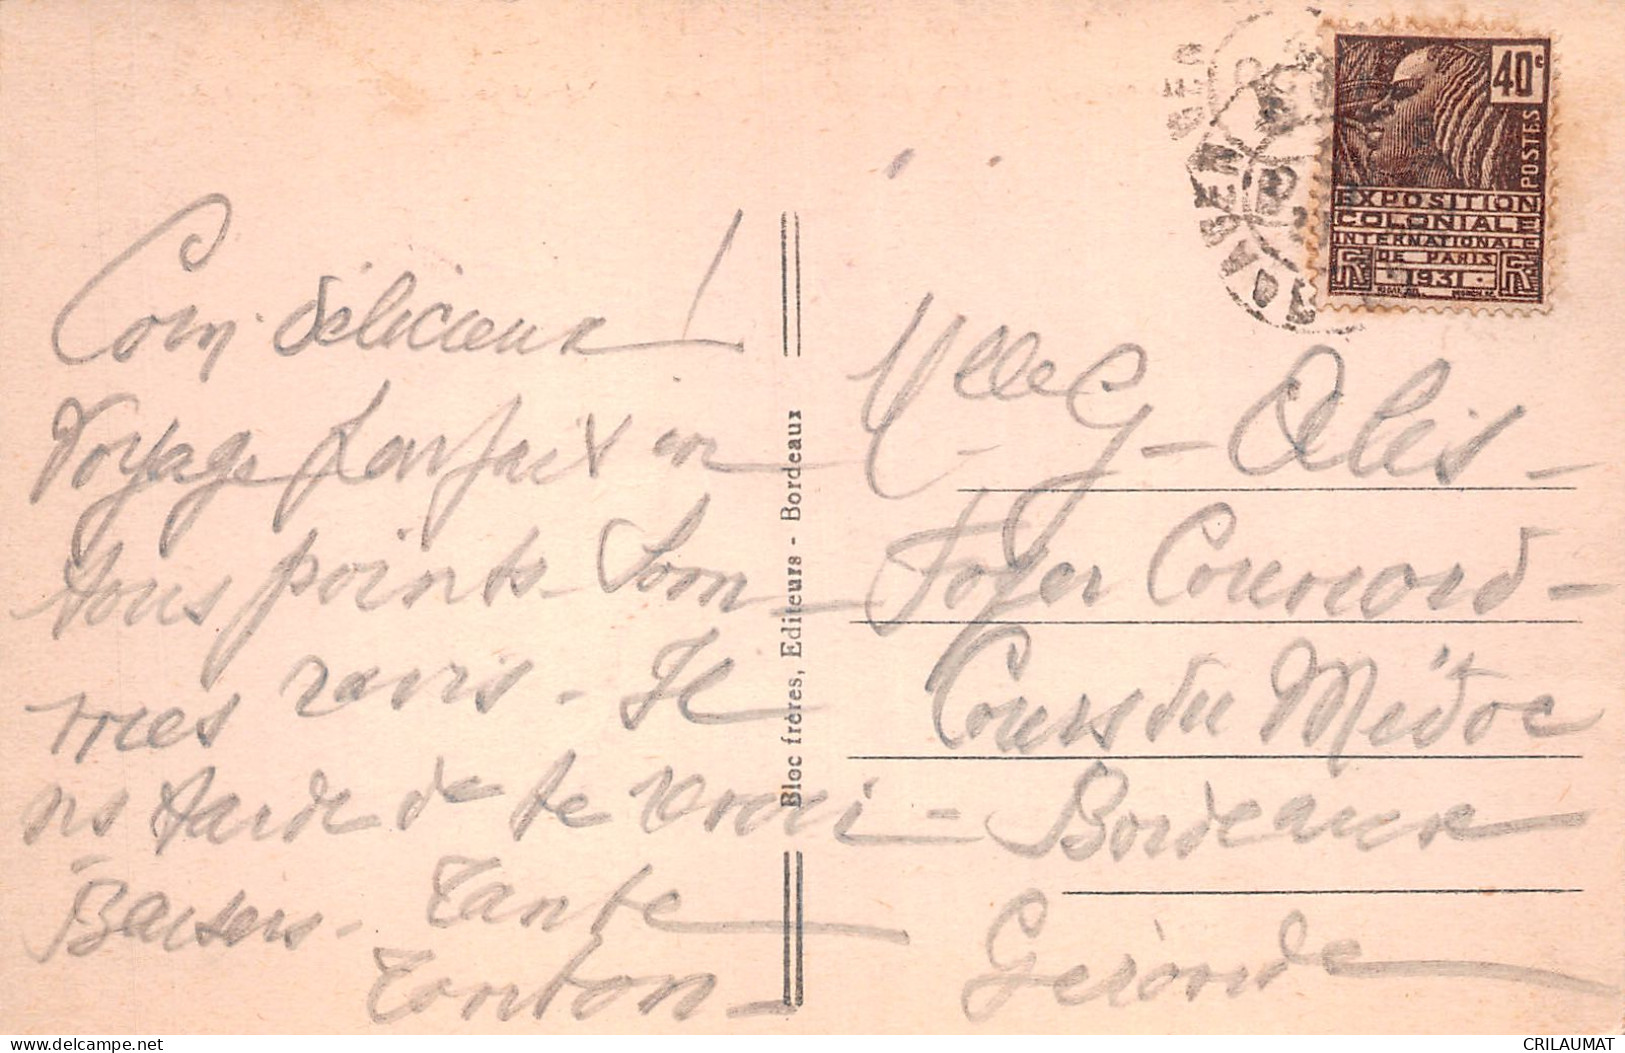 Coin délicieux !
Voyage parfait en
tous points. Som
mes ravis. Il
ns tarde de te revoir -
Baisers. Tante
Tonton
Bloc frères, Editeurs - Bordeaux
40c
POSTES
EXPOSITION
COLONIALE
INTERNATIONALE
DE PARIS
RF 1931 RF
Mlle G. Alis -
Foyer
Cours du Médoc
Bordeaux
Gironde
delcampe.net
CRILAUMAT